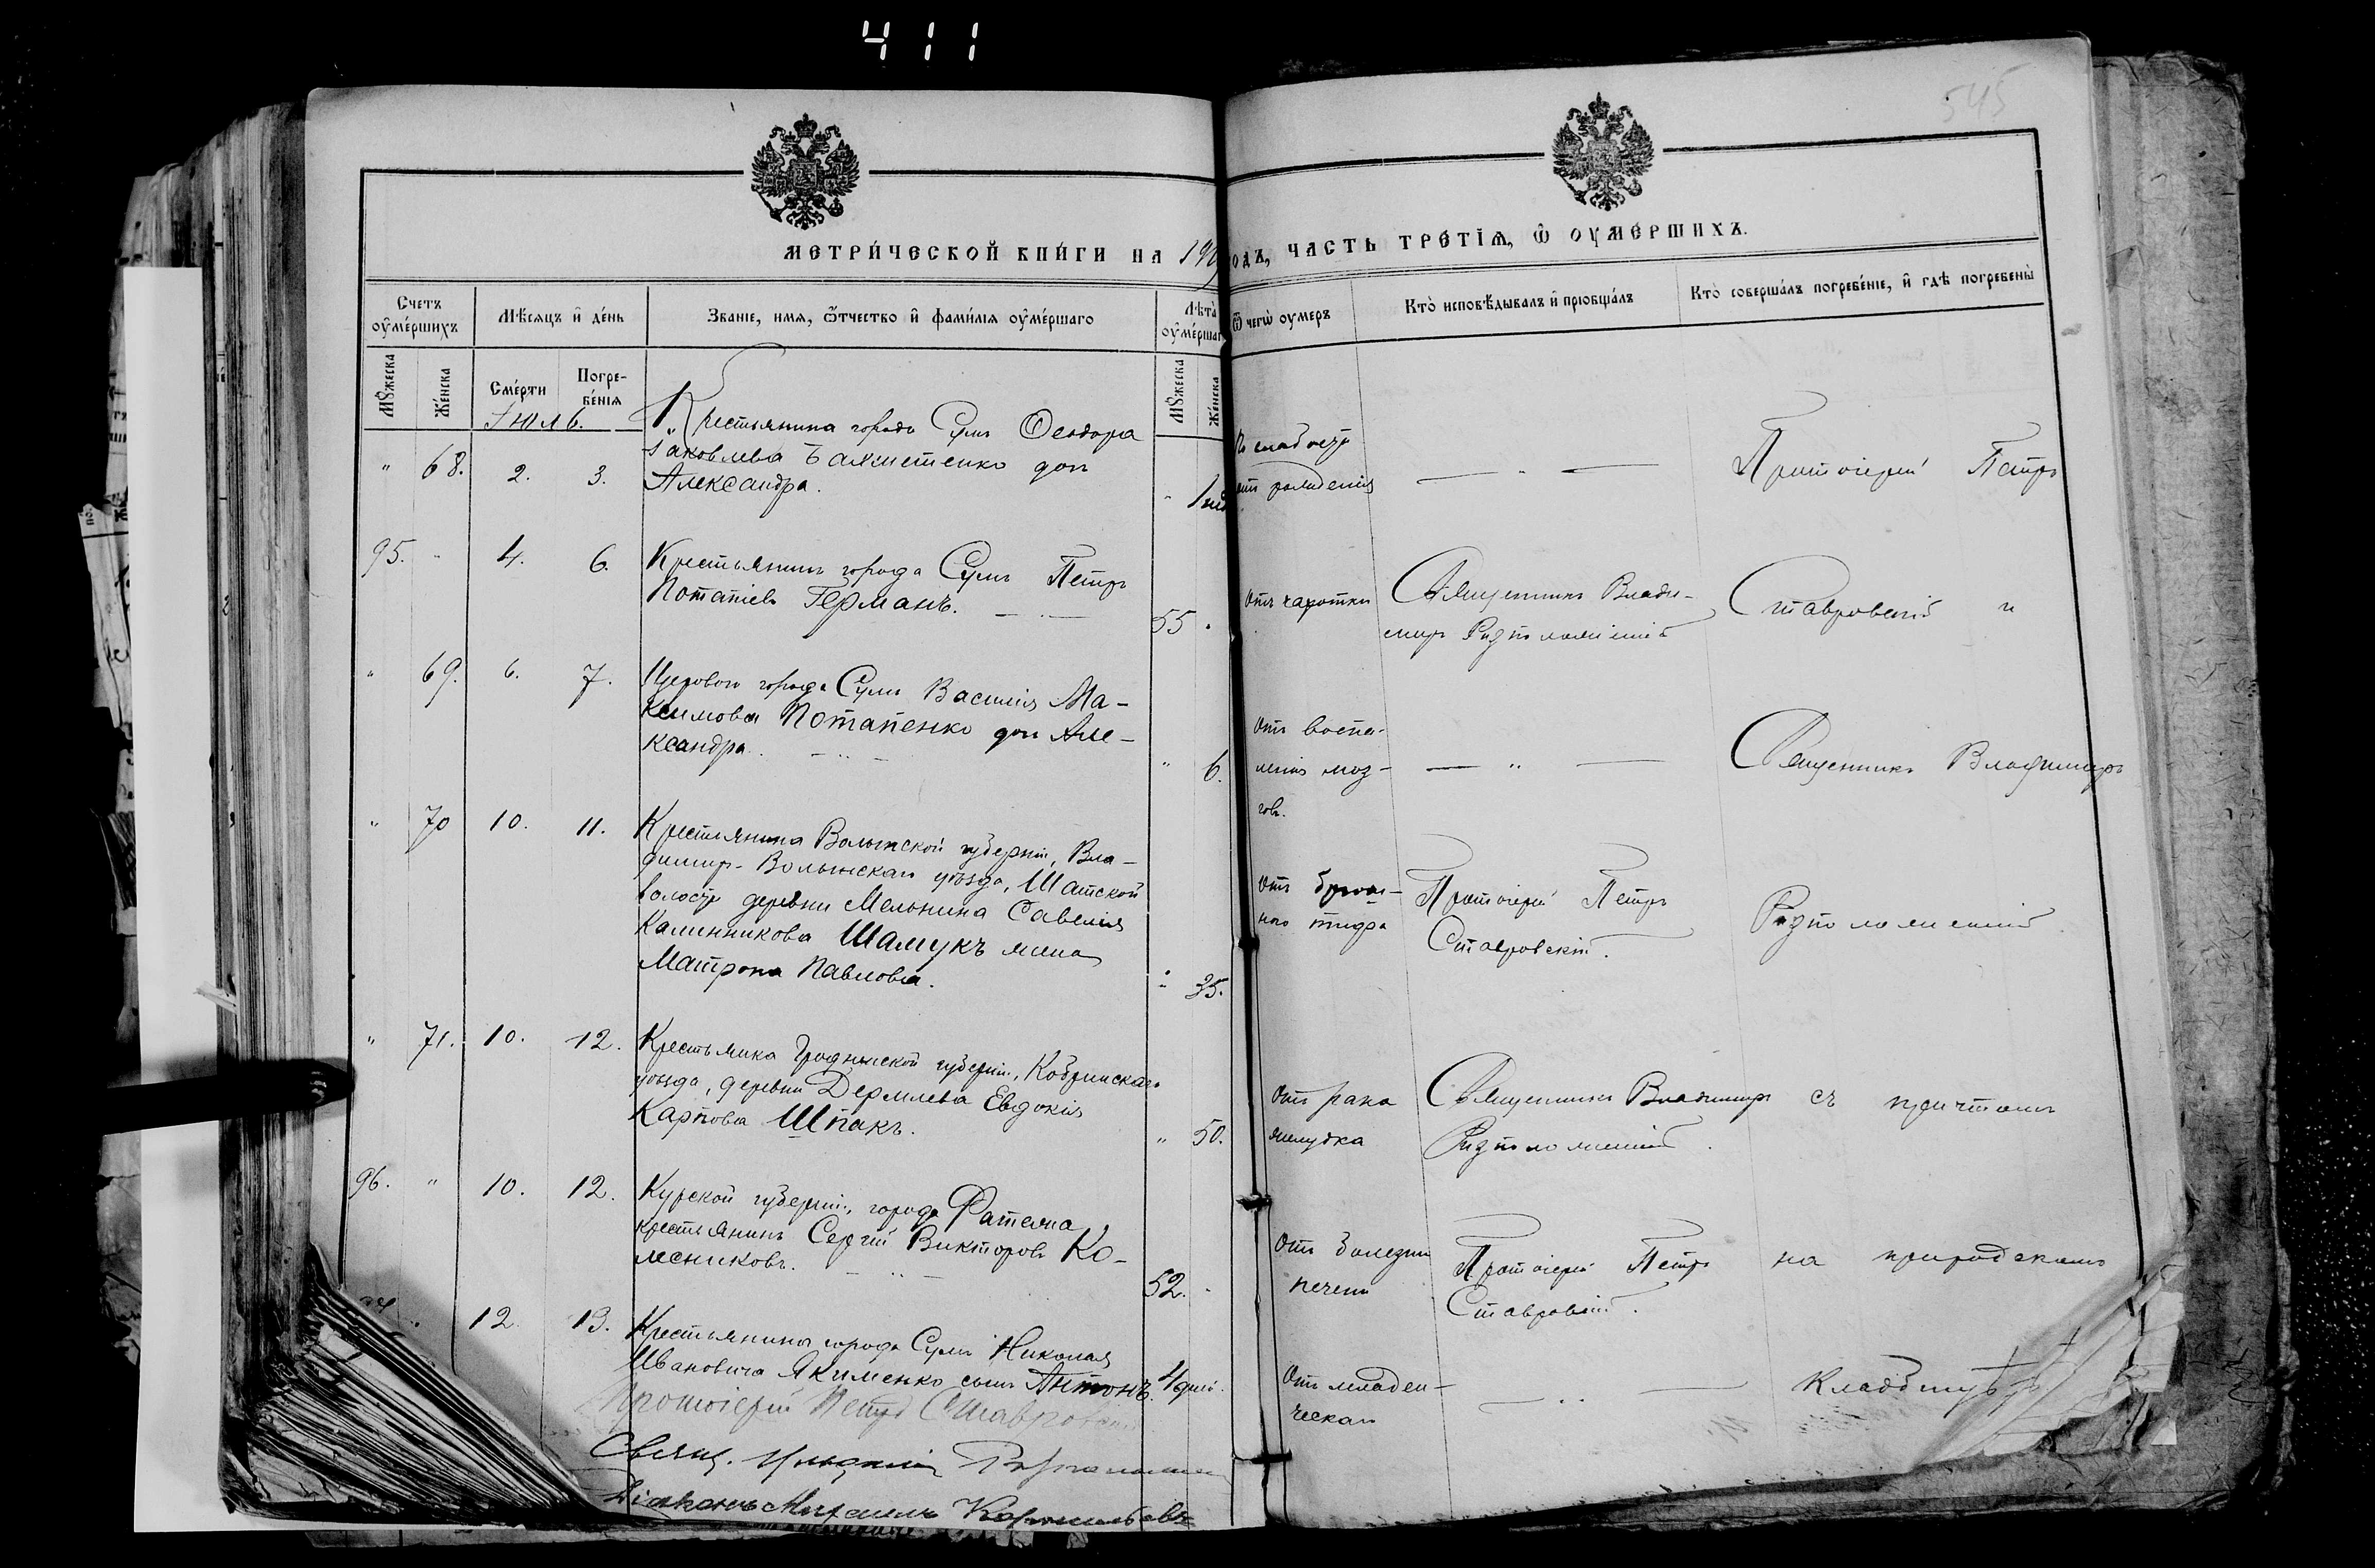 411
545
МЕТРИ́ЧЕСКОЙ КНИ́ГИ НА 19
ОДЪ, ЧАСТЬ ТРЕ́ТІѦ, Ѿ ОУМЕ́РШИХЪ.
Счетъ оу҆ме́ршихъ
Мѣ́сяцъ и҆ де́нь
Зва́ніе, имя, ѻ҆́тчество и҆ фами́лія оу҆ме́ршаго
Лѣта̀ оу҆ме́ршаг
Ѿ чегѡ̀ оумеръ
Кто̀ исповѣ́дывалъ и҆ приобща́лъ
Кто̀ соверша́лъ погребе́ніе, и҆ гдѣ̀ погребены̀
Мꙋжеска
Же́нска
Сме́рти
Погре-
бе́нія
Мꙋжеска
Же́нска
Іюль.
" 68. 2. 3.
Крестьянина города Сумъ Ѳеодора
Іаковлева дочь
Александра.
" 1 нед
По слабости
отъ рожденія
— " —
Протоіерей Петръ
95. " 4. 6.
Крестьянинъ города Сумъ Петръ
Потапіевъ Германъ.
55 "
Отъ чахотки
Священникъ Влади-
миръ
Ставровскій и
" 69. 6. 7.
Цехового города Сумъ Василія Ма-
ксимова Потапенко дочь Але-
ксандра.
" 6.
Отъ воспа-
ленія моз-
говъ.
— " —
Священникъ Владимиръ
" 70 10. 11.
Крестьянина Волынской губерніи, Вла-
димир-Волынскаго уѣзда, Шатской
волости деревни Мельника Савелія
Калинникова Шамукъ жена
Матрона Павлова.
" 35.
Отъ брюш-
ного тифа
Протоіерей Петръ
Ставровскій.
" 71. 10. 12.
Крестьянка Гродненской губерніи, Кобринскаго
уѣзда, деревни Евдокія
Карпова Шпакъ.
" 50.
Отъ рака
желудка
Священникъ Владимиръ
съ причтомъ
96. " 10. 12.
Курской губерніи, города Фатежа,
крестьянинъ Сергій Викторовъ Ко-
лесниковъ.
52. "
Отъ болезни
печени
Протоіерей Петръ
Ставровскій.
на приходскомъ
12. 13.
Крестьянина города Сумъ Николая
Ивановича Якименко сынъ Антонъ.
4 дней.
Отъ младен-
ческая
— " —
Кладбищѣ
Протоіерей Петръ Ставровскій
Свящ.
Діаконъ Михаилъ